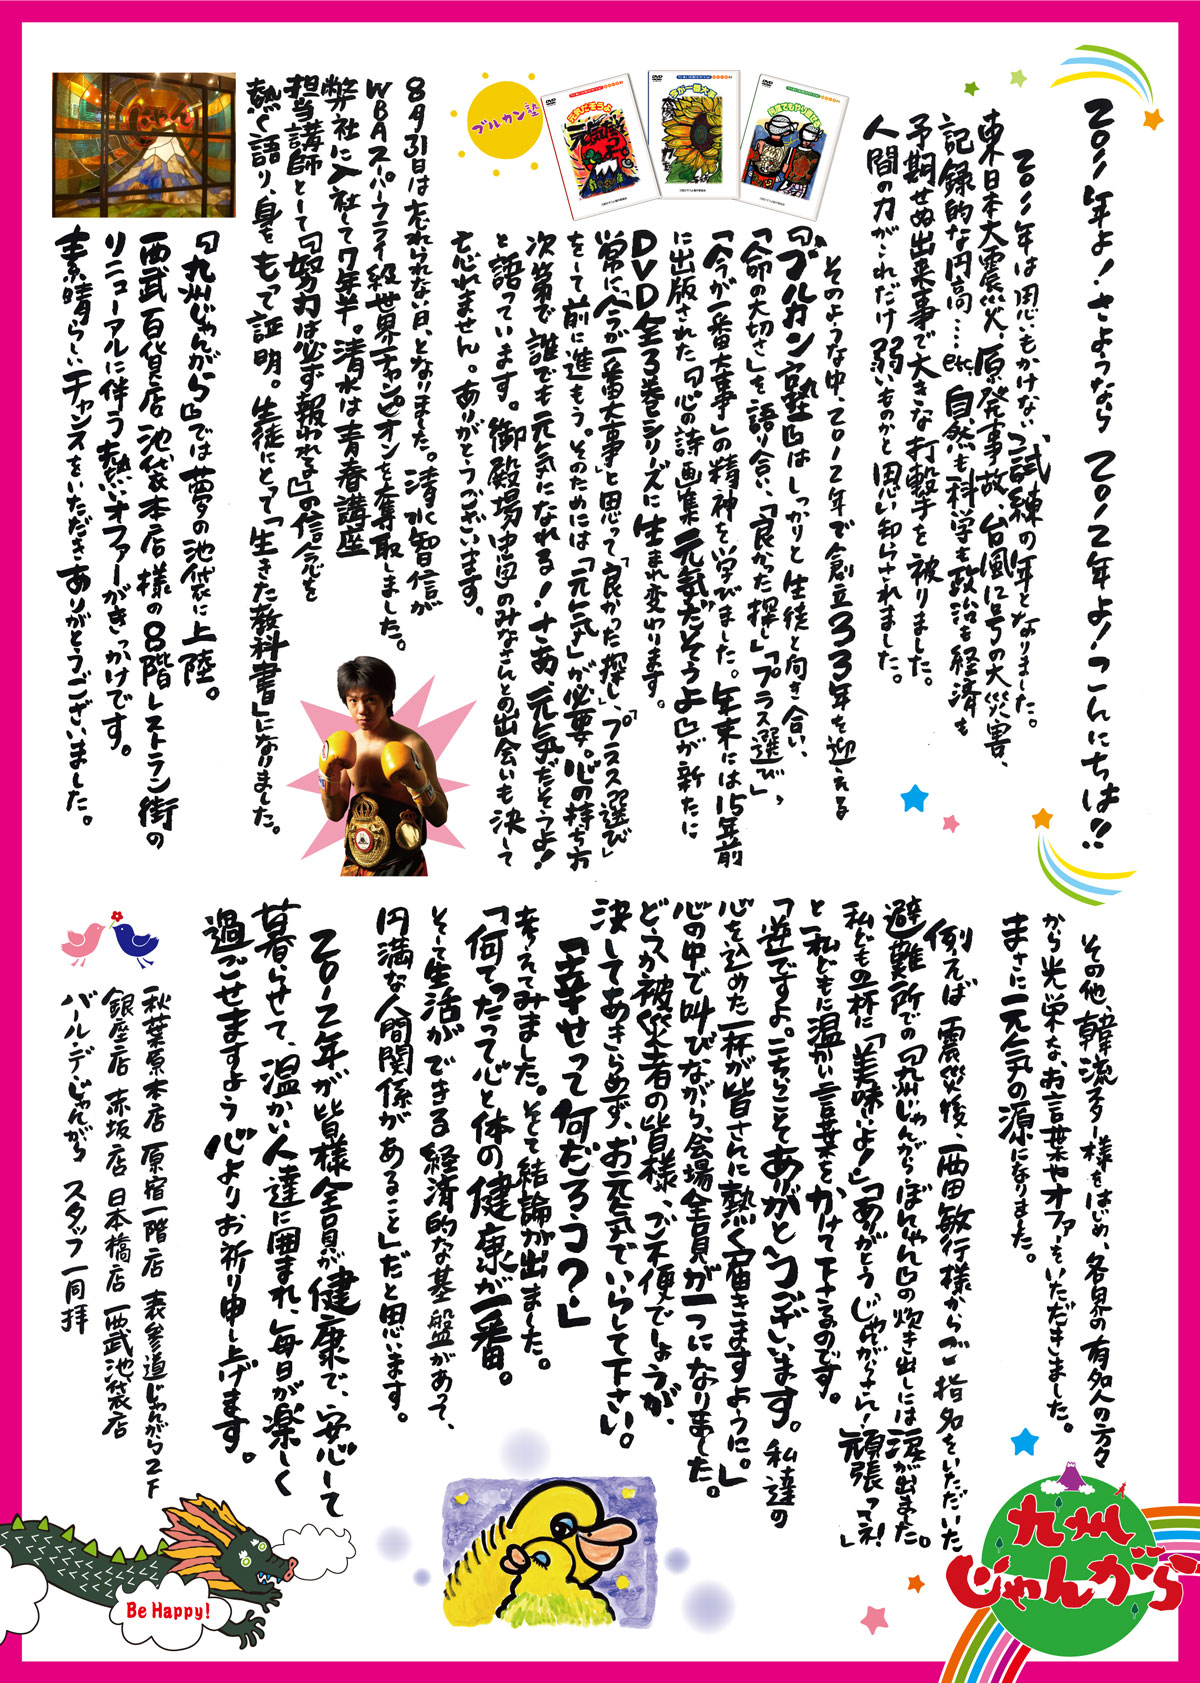 2011年よ！さようなら 2012年よ！こんにちは!!
2011年は思いもかけない試練の年となりました。
東日本大震災、原発事故、台風12号の大災害、
記録的な円高……etc 自然も科学も政治も経済も
予期せぬ出来事で大きな打撃を被りました。
人間の力がこれだけ弱いものかと思い知らされました。
そのような中、2012年で創立33年を迎える
『ブルカン塾』はしっかりと生徒と向き合い、
「命の大切さ」を語り合い、「良かった探し」「プラス選び」、
「今が一番大事」の精神を学びました。年末には15年前
に出版された『心の詩画集 元気だそうよ』が新たに
DVD全3巻シリーズに生まれ変わります。
常に、「今が一番大事」と思って「良かった探し」、「プラス選び」
をして前に進もう。そのためには「元気」が必要。心の持ち方
次第で誰でも元気になれる！さあ、元気だそうよ！
と語っています。御殿場中学のみなさんとの出会いも決して
忘れません。ありがとうございます。
ブルカン塾
8月31日は忘れられない日、となりました。清水智信が
WBAスーパーフライ級世界チャンピオンを奪取しました。
弊社に入社して7年半。清水は青春講座
担当講師として「努力は必ず報われる」の信念を
熱く語り、身をもって証明。生徒にとって「生きた教科書」になりました。
『九州じゃんがら』では夢の池袋に上陸。
西武百貨店池袋本店様の8階レストラン街の
リニューアルに伴う熱いオファーがきっかけです。
素晴らしいチャンスをいただきありがとうございました。
その他、韓流スター様をはじめ、各界の有名人の方々
から光栄な、お言葉やオファーをいただきました。
まさに元気の源になりました。
例えば震災後、西田敏行様からご指名をいただいた
避難所での『九州じゃんがらぼんしゃん』の炊き出しには涙が出ました。
私どもの一杯に「美味いよ！」「ありがとうじゃんがらさん！頑張ってネ！」
と私どもに温かい言葉をかけて下さるのです。
「逆ですよ。こちらこそありがとうございます。私達の
心を込めた一杯が皆さんに熱く届きますように。」
心の中で叫びながら、会場全員が一つになりました。
どうか被災者の皆様、ご不便でしょうが、
決してあきらめず、お元気でいらして下さい。
「幸せって何だろう？」
考えてみました。そして結論が出ました。
「何てったって心と体の健康が一番。
そして生活ができる経済的な基盤があって、
円満な人間関係があること」だと思います。
2012年が皆様全員が健康で、安心して
暮らせて、温かい人達に囲まれ、毎日が楽しく
過ごせますよう心よりお祈り申し上げます。
秋葉原本店 原宿一階店 表参道じゃんがら2F
銀座店 赤坂店 日本橋店 西武池袋店
バール・デ・じゃんがら スタッフ一同 拝
Be Happy!
九州
じゃんがら